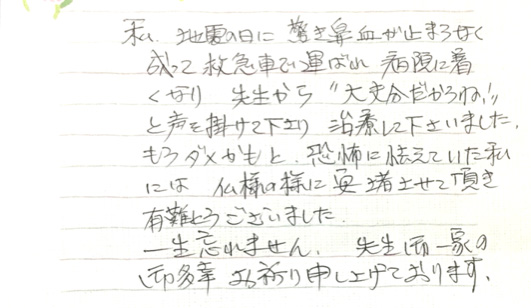 私、地震の日に 驚き鼻血が止まらなく
成って救急車で運ばれ 病院に着
くなり 先生から "大丈夫だからね!"
と声を掛けて下さり 治療して下さいました。
もうダメかもと、恐怖に怯えていた私
には 仏様の様に 安堵させて頂き
有難とうございました.
一生忘れません、 先生御一家の
御多幸 お祈り申し上げております。